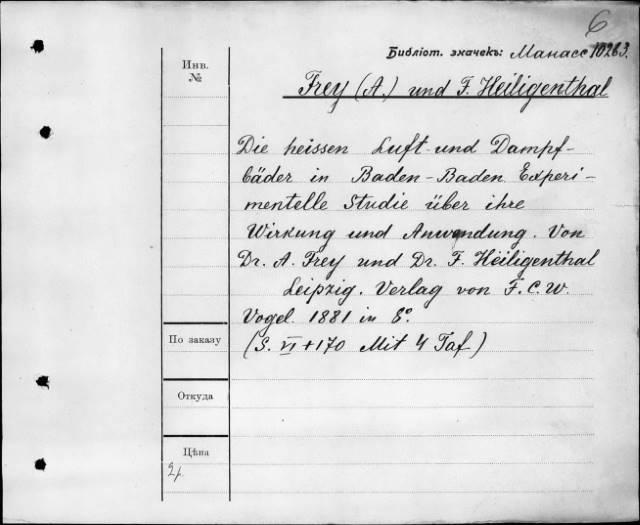 6
Библіот. значекъ: Манасс 10263.
Инв.
№
Frey (A.) und F. Heiligenthal
Die heissen Luft- und Dampf-
bäder in Baden-Baden Experi-
mentelle Studie über ihre
Wirkung und Anwendung. Von
Dr. A. Frey und Dr. F. Heiligenthal
Leipzig. Verlag von F. C. W.
Vogel. 1881 in 8°.
По заказу
(S. VI + 170 Mit 4 Taf.)
Откуда
Цѣна
2р.